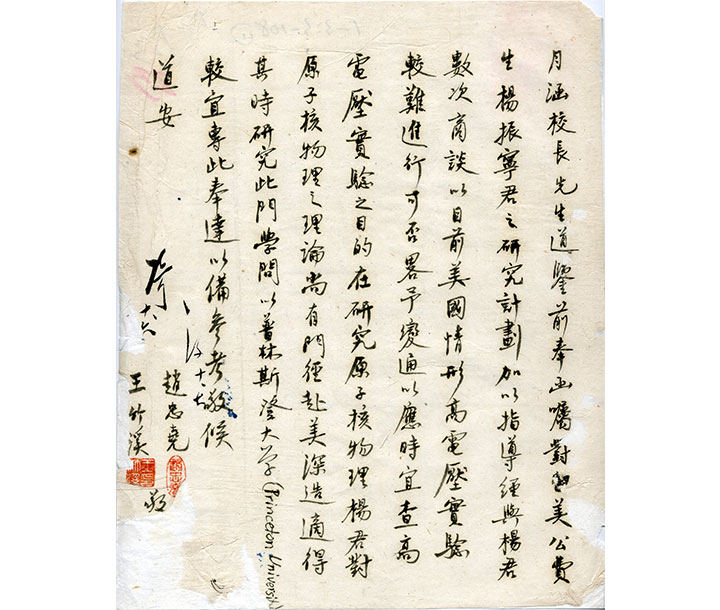 月涵校長先生道鑒前奉函囑對留美公費
生楊振寧君之研究計劃加以指導經與楊君
數次商談以目前美國情形高電壓實驗
較難進行可否畧予變通以應時宜查高
電壓實驗之目的在研究原子核物理楊君對
原子核物理之理論尚有門徑赴美深造適得
其時研究此門學問以普林斯登大学(Princeton Universit
較宜專此奉達以備參考敬候
道安
趙忠堯
王竹溪 敬
十六
十六